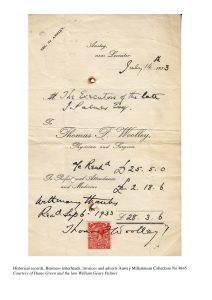 TEL. 51 ANSTEY.
Anstey,
near Leicester
July 14th 1933
The Executors of the late
J Palmer Esq.
To
Thomas P. Woolley,
Physician and Surgeon
To Rend
£25. 5. 0
To Professional Attendance
and Medicine
£2. 18. 6
With many thanks
Recd Sep 6 - 1933
£28. 3. 6
Thomas P Woolley
Historical records, Business letterheads, invoices and adverts Anstey Millennium Collection No.4845
Courtesy of Diane Green and the late William Geary Palmer